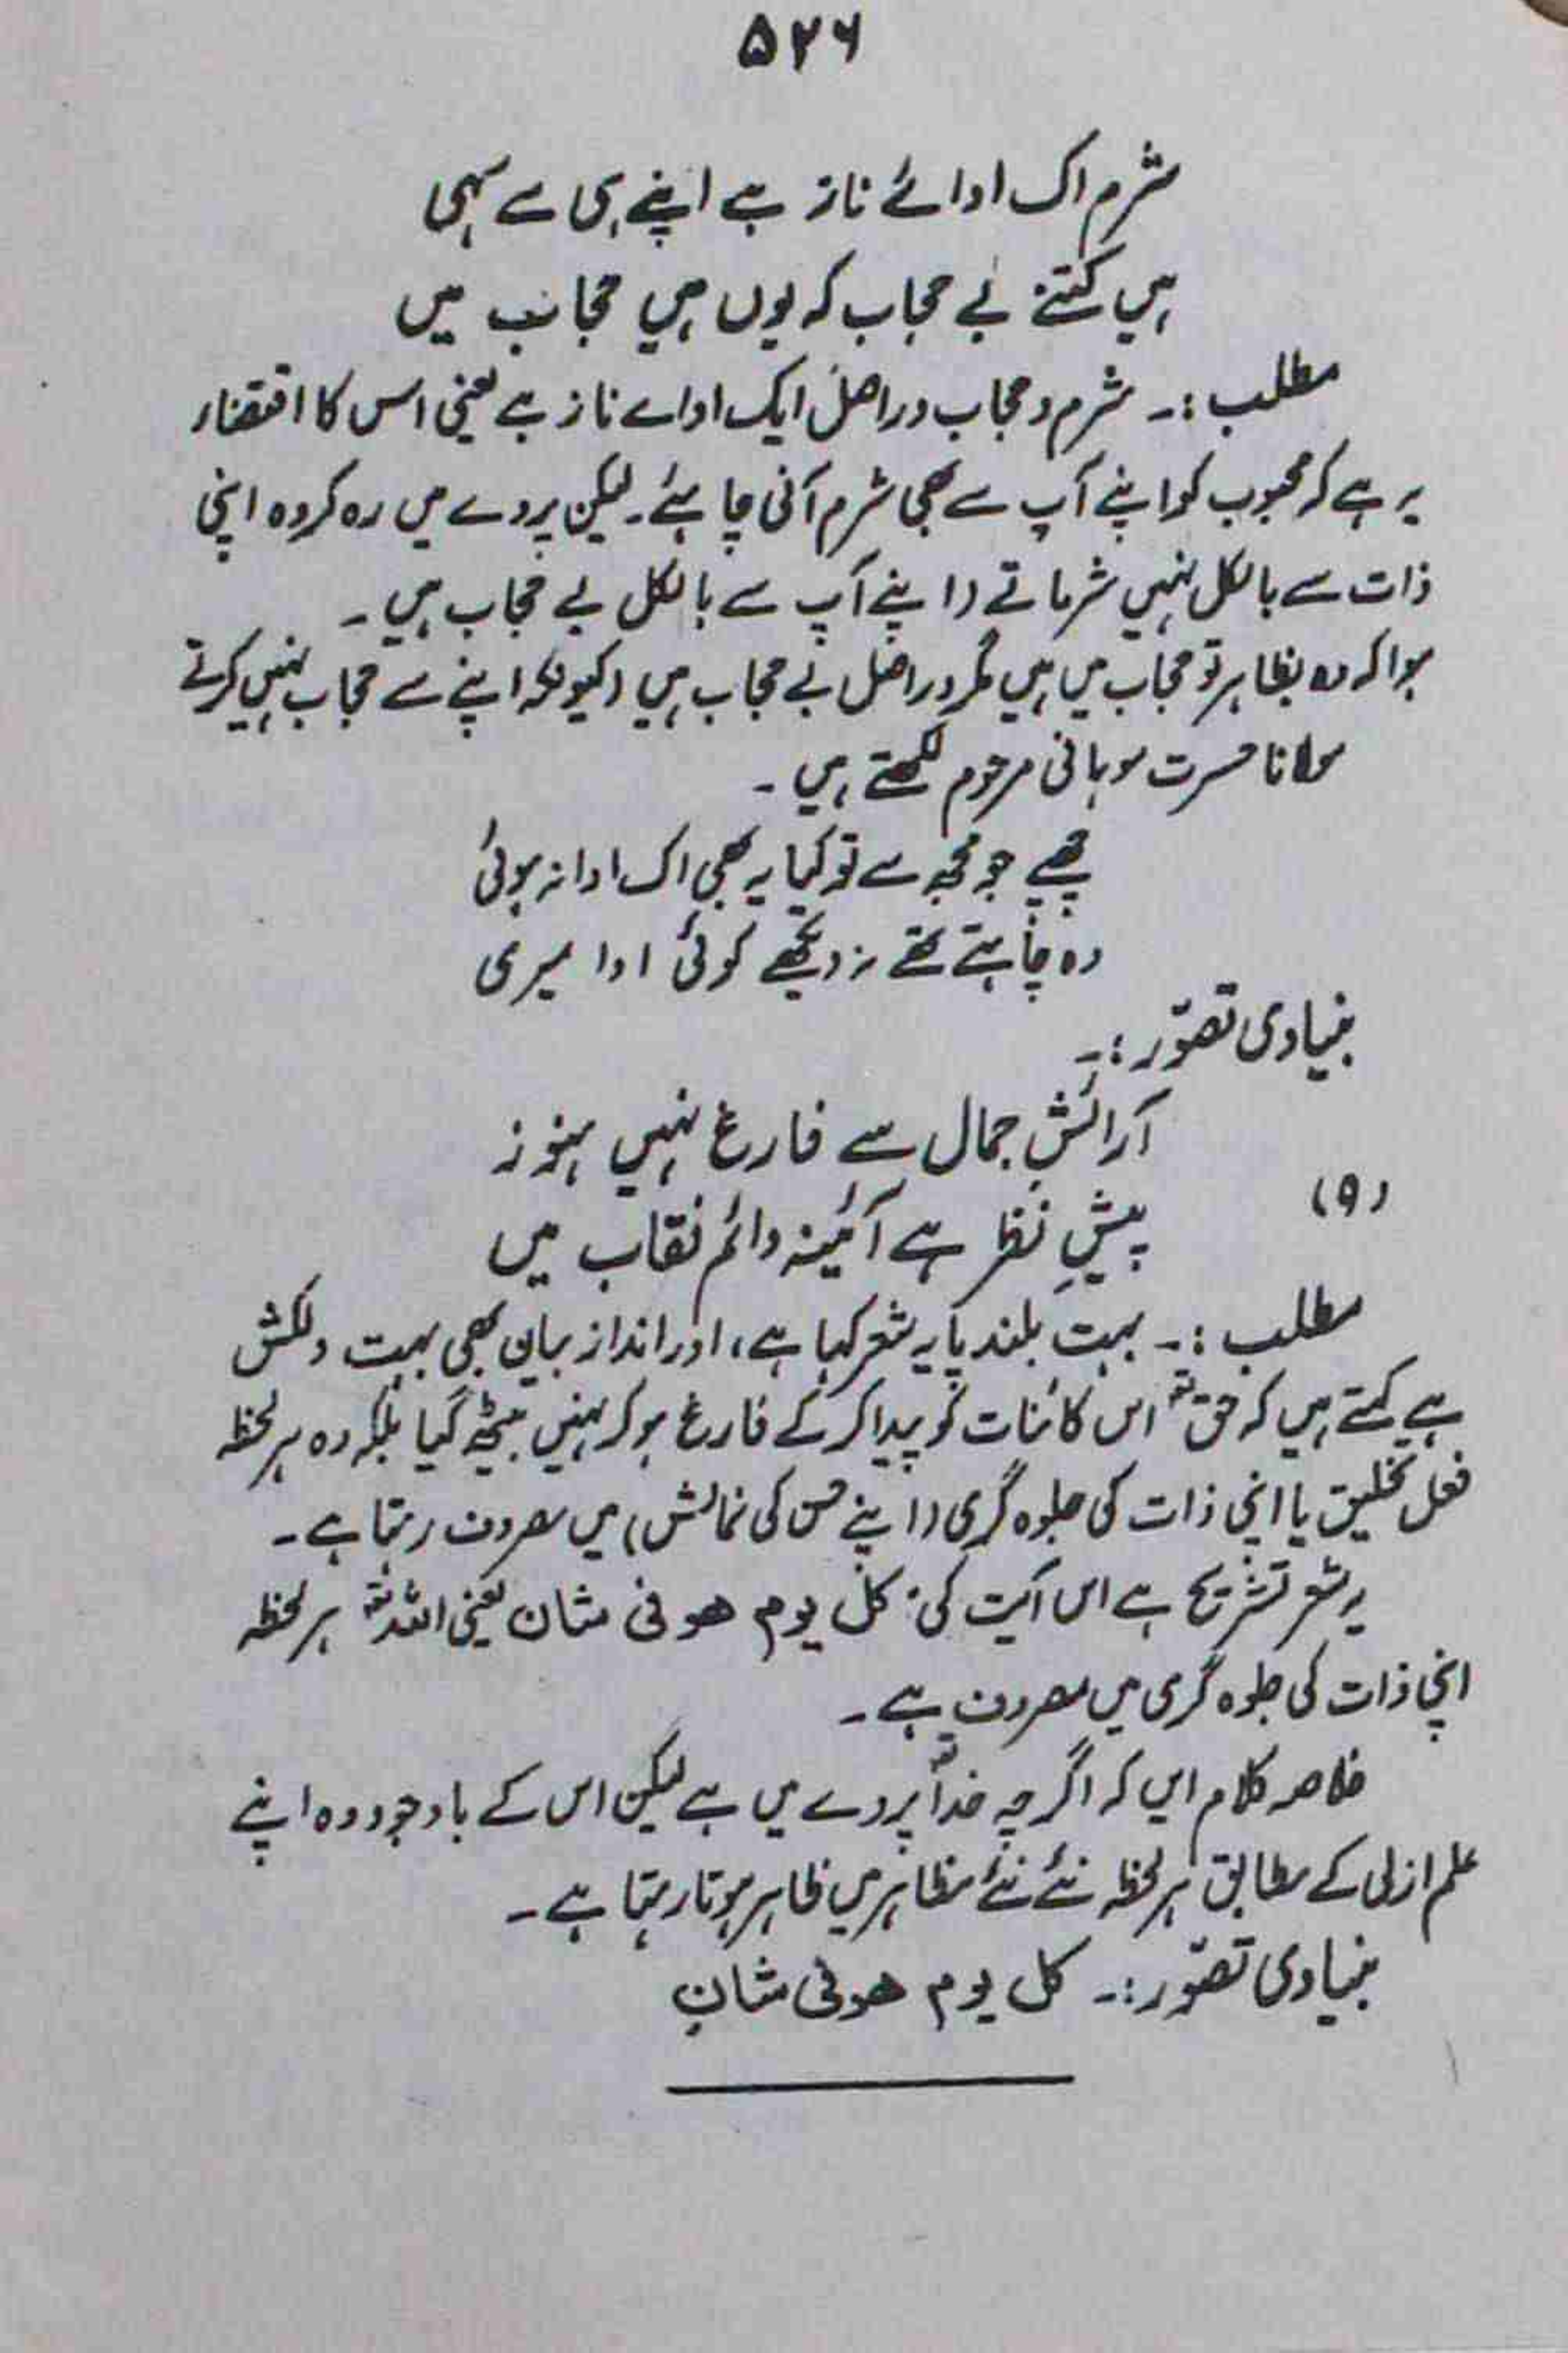 ۵۲۶
شرم اک ادائے ناز ہے اپنے ہی سے سہی
ہیں کتنے بے حجاب کہ یوں ہیں حجاب میں
مطلب :۔ شرم و حجاب دراصل ایک ادائے ناز ہے یعنی اس کا اقتضاء
یہ ہے کہ محبوب کو اپنے آپ سے بھی شرم آنی چاہئے۔ لیکن پردے میں رہ کر وہ اپنی
ذات سے بالکل نہیں شرماتے (اپنے آپ سے بالکل بے حجاب ہیں۔
ہوا کہ وہ بظاہر تو حجاب میں ہیں مگر دراصل بے حجاب ہیں (کیونکہ اپنے سے حجاب نہیں کرتے
مولانا حسرت موہانی مرحوم لکھتے ہیں۔
چھپے جو مجھ سے تو کیا یہ بھی اک ادا نہ ہوئی
وہ چاہتے تھے نہ دیکھے کوئی ادا میری
بنیادی تصوّر :۔
آرائشِ جمال سے فارغ نہیں ہنوز
(۹)
پیشِ نظر ہے آئینہ دائم نقاب میں
مطلب :۔ بہت بلند پایہ شعر کہا ہے، اور انداز بیان بھی بہت دلکش
ہے کہتے ہیں کہ حق اس کائنات کو پیدا کر کے فارغ ہو کر نہیں بیٹھ گیا بلکہ وہ ہر لحظہ
فعل تخلیق یا اپنی ذات کی جلوہ گری (اپنے حسن کی نمائش) میں مصروف رہتا ہے۔
یہ شعر تشریح ہے اس آیت کی: کل یوم ھو فی شان یعنی اللہ ہر لحظہ
اپنی ذات کی جلوہ گری میں مصروف ہے۔
خلاصہ کلام ایں کہ اگرچہ خدا پردے میں ہے لیکن اس کے باوجود وہ اپنے
علم ازلی کے مطابق ہر لحظہ نئے نئے مظاہر میں ظاہر ہوتا رہتا ہے۔
بنیادی تصوّر :۔ کل یوم ھو فی شانِ